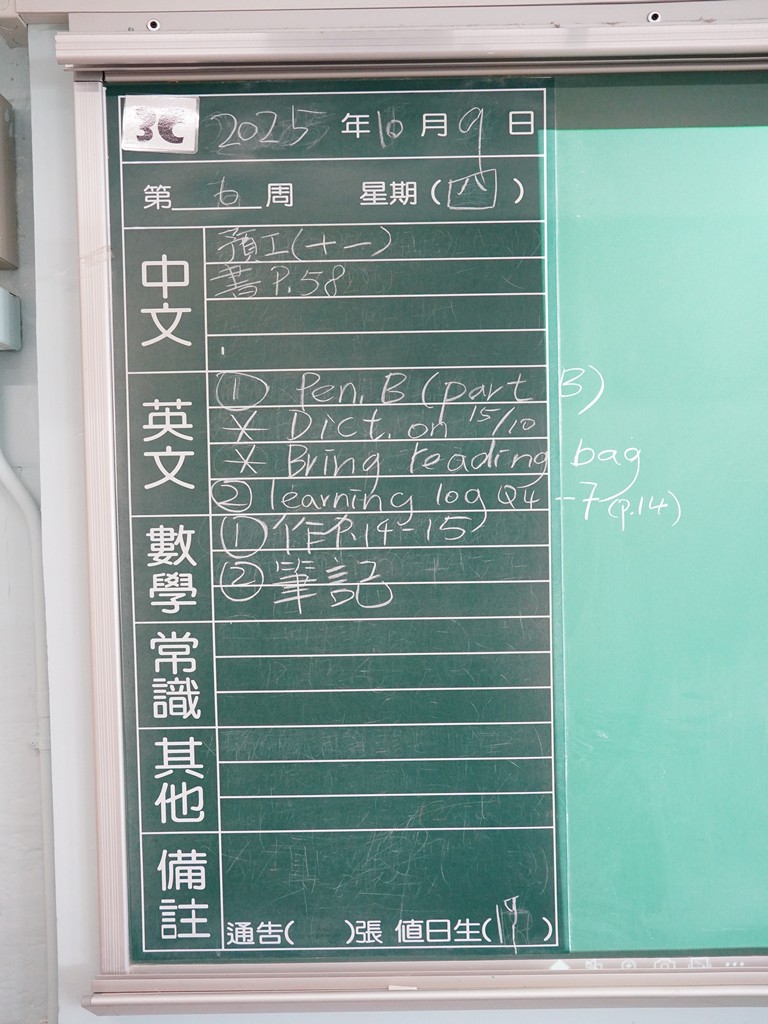 3C 2025 年 10 月 9 日
第 六 周 星期 (四)
中文
預工(十一)
書 P.58
英文
① Pen. B (part B)
* Dict. on 15/10
* Bring reading bag
② learning log Q4-7 (p.14)
數學
① 作 P.14-15
② 筆記
常識
其他
備註
通告( )張 值日生( )